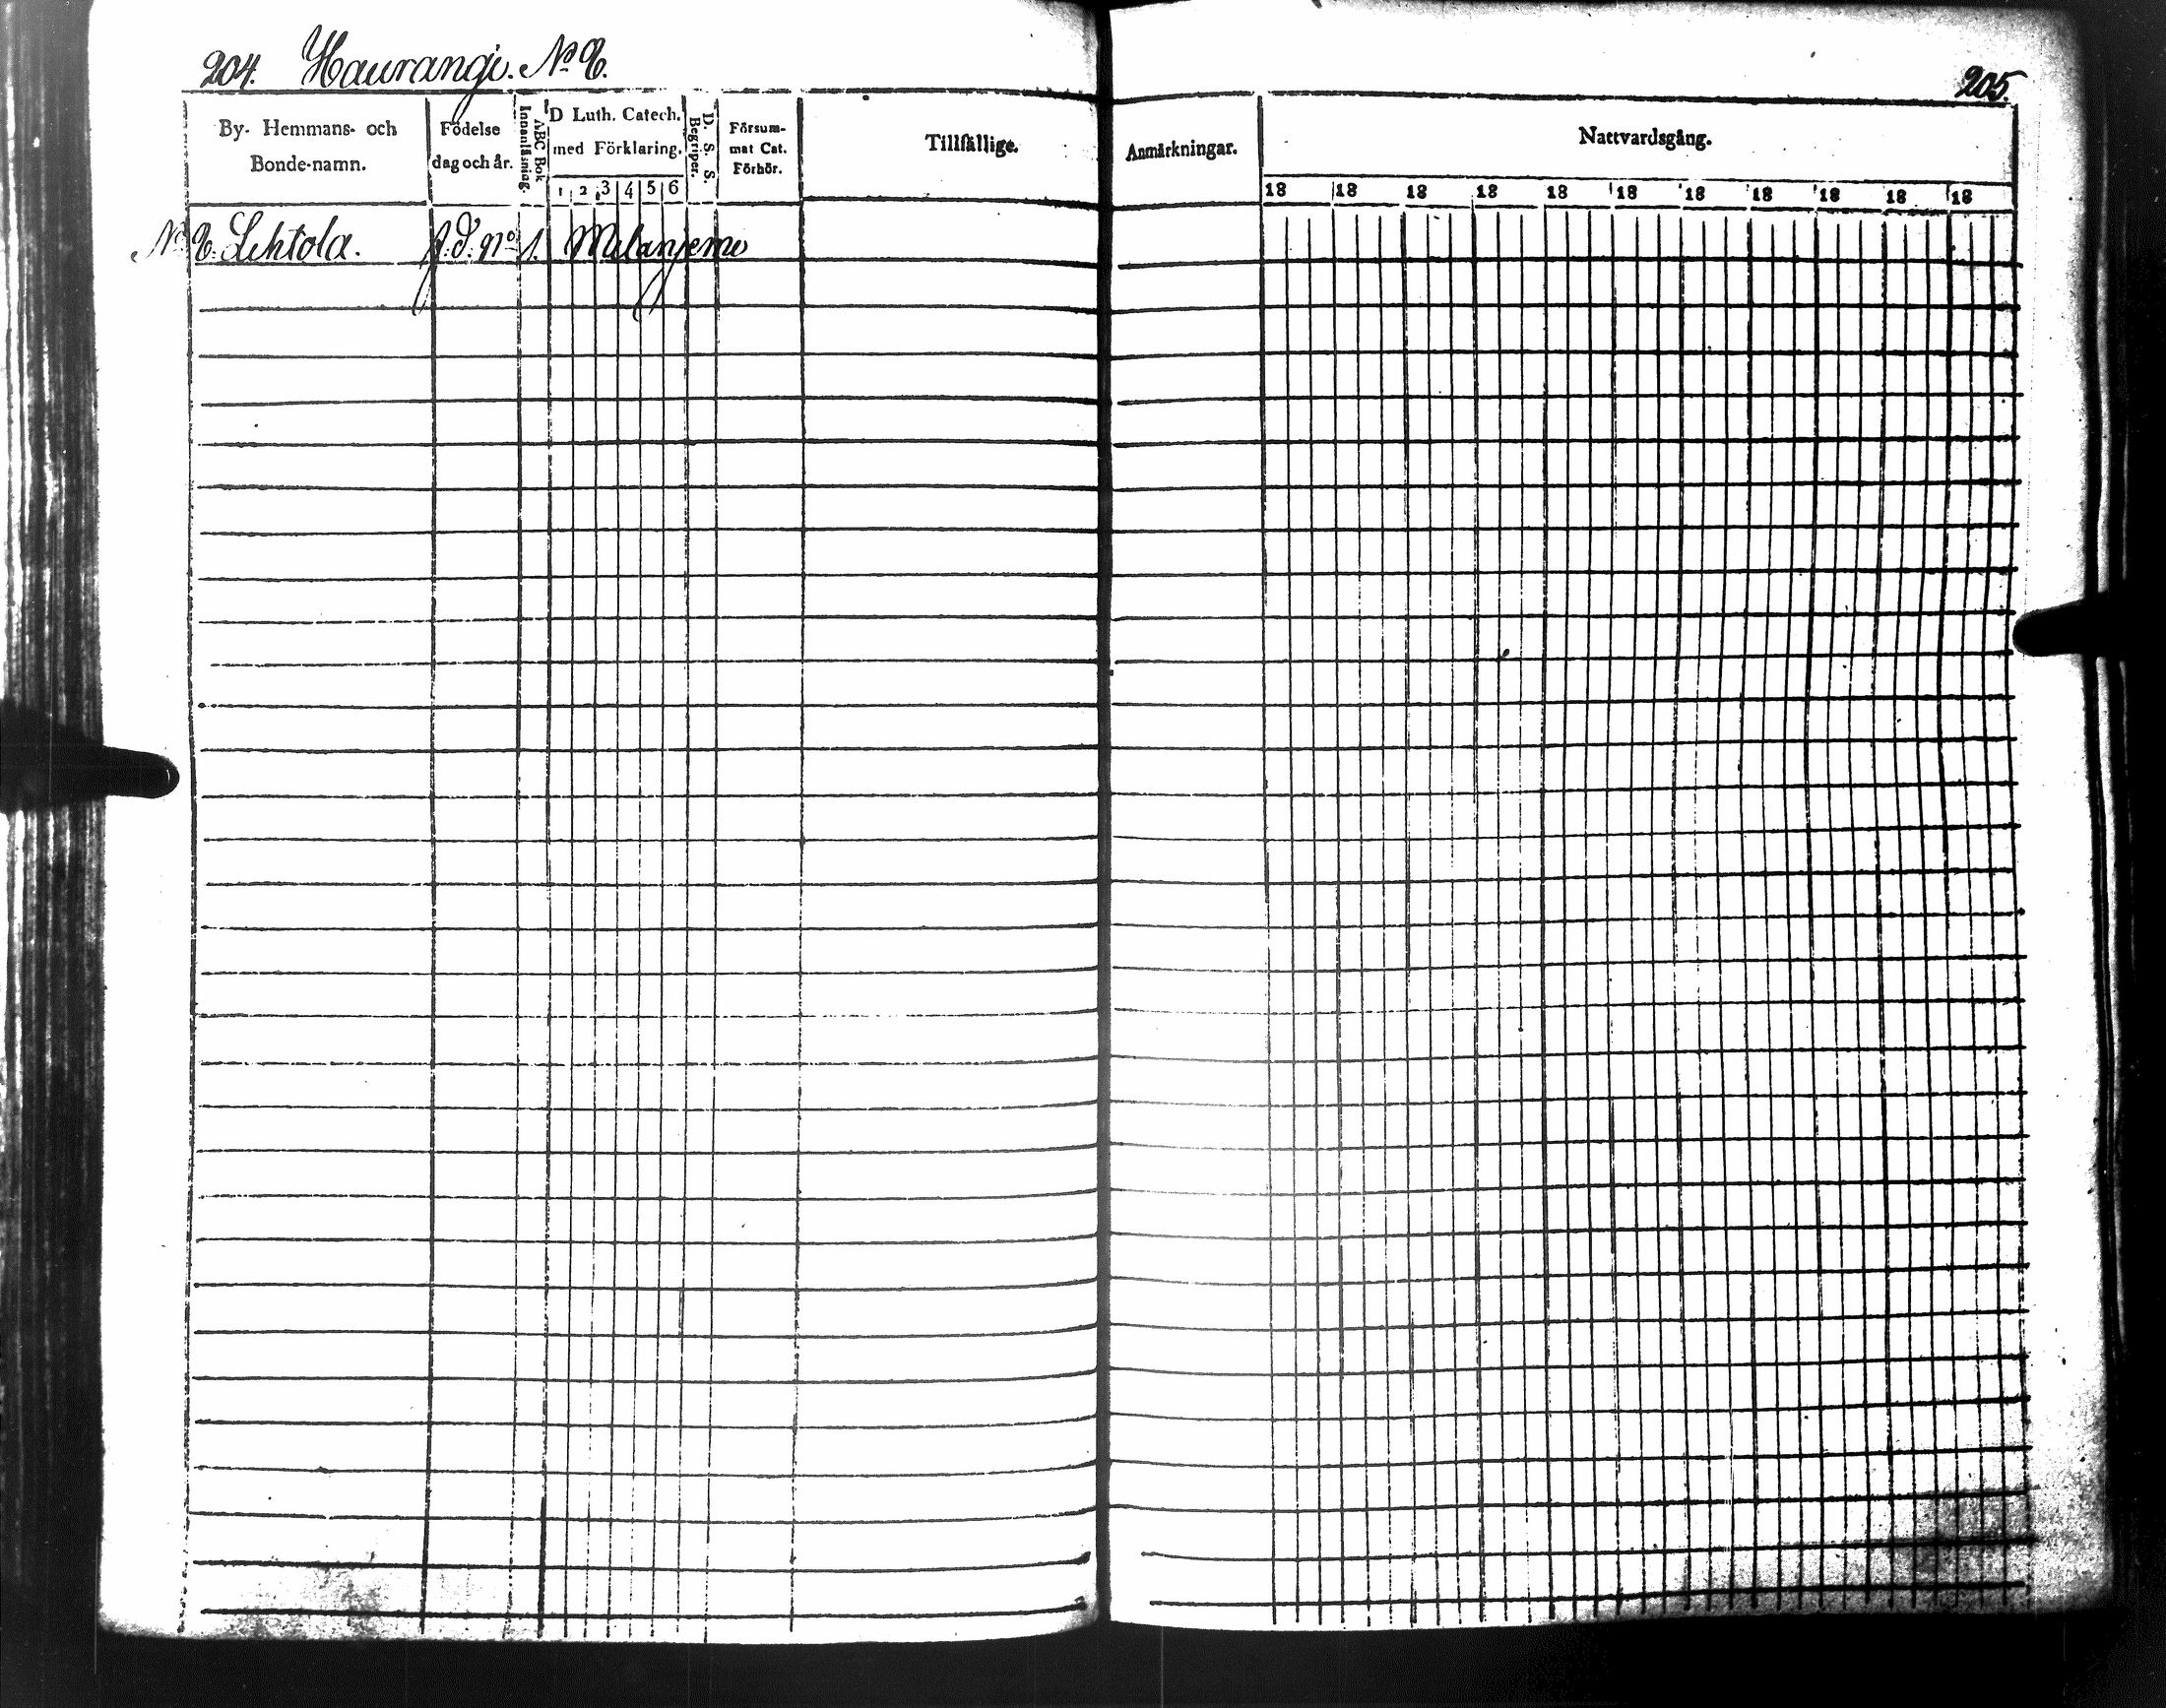 204. Haurangi. No 2.
205.
By- Hemmans- och Bonde-namn.
Födelse dag och år.
Innanläsning.
ABC Bok
D Luth. Catech. med Förklaring.
1 2 3 4 5 6
D. S. S. Begriper.
Försum- mat Cat. Förhör.
Tillfällige.
Anmärkningar.
Nattvardsgång.
18 18 18 18 18 18 18 18 18 18 18
No 2. Lehtola.